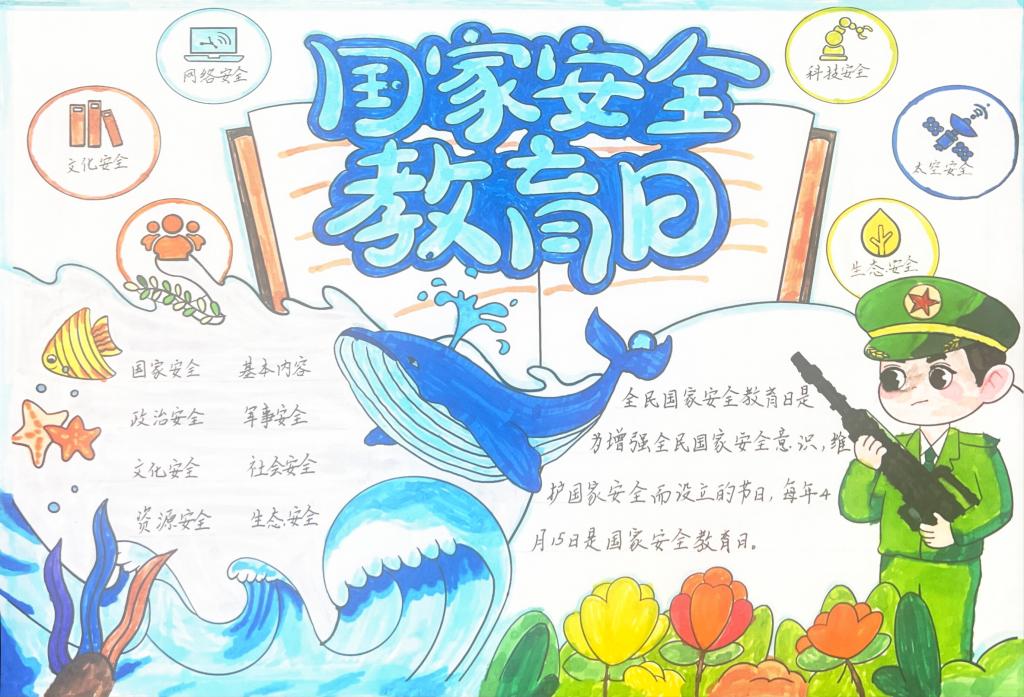 国家安全
教育日
网络安全
文化安全
科技安全
太空安全
生态安全
国家安全 基本内容
政治安全 军事安全
文化安全 社会安全
资源安全 生态安全
全民国家安全教育日是
为增强全民国家安全意识,维
护国家安全而设立的节日,每年4
月15日是国家安全教育日。